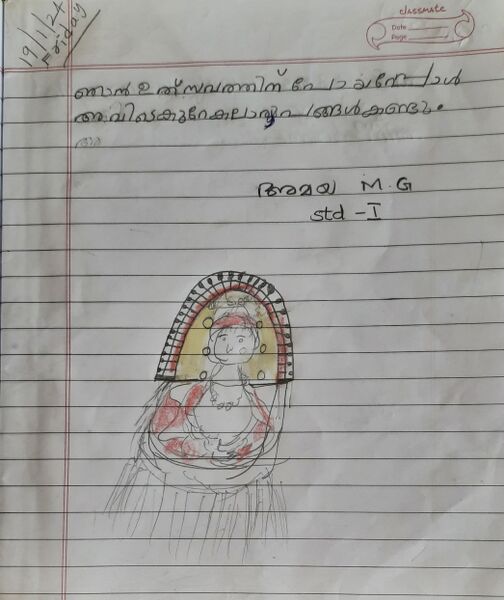 19/1/24
Friday
classmate
Date
Page
ഞാൻ ഉത്സവത്തിന് പോയപ്പോൾ
അവിടെ കുറേ കലാരൂപങ്ങൾ കണ്ടു.
അമയ M.G
std - I